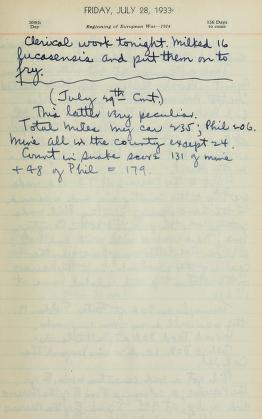 FRIDAY, JULY 28, 1933
209th Day
Beginning of European War—1914
156 Days to come
Clerical work tonight. Milked 16
fuscosensis and put them on to
fry.
(July 29th Cnt.)
This latter very peculiar.
Total miles my car 235; Phil 206.
Mine all in the county except 24.
Count in snake score 131 of mine
+ 48 of Phil = 179.